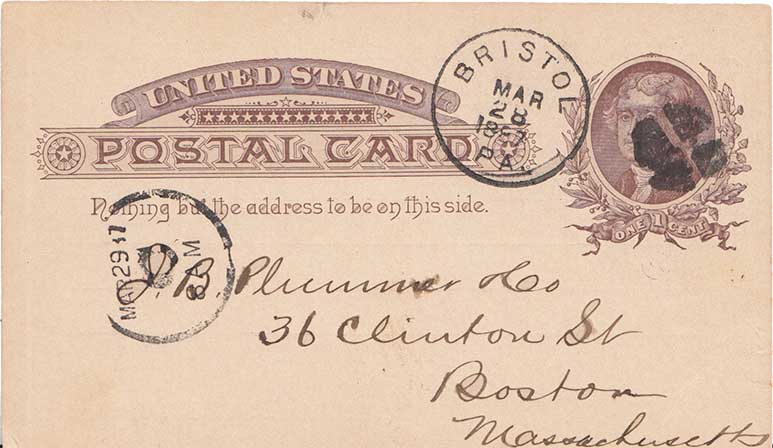 UNITED STATES
POSTAL CARD
Nothing but the address to be on this side.
ONE 1 CENT
BRISTOL
MAR
28
PA.
MAR 29
8 AM
J. B. Plummer & Co
36 Clinton St
Boston
Massachusetts